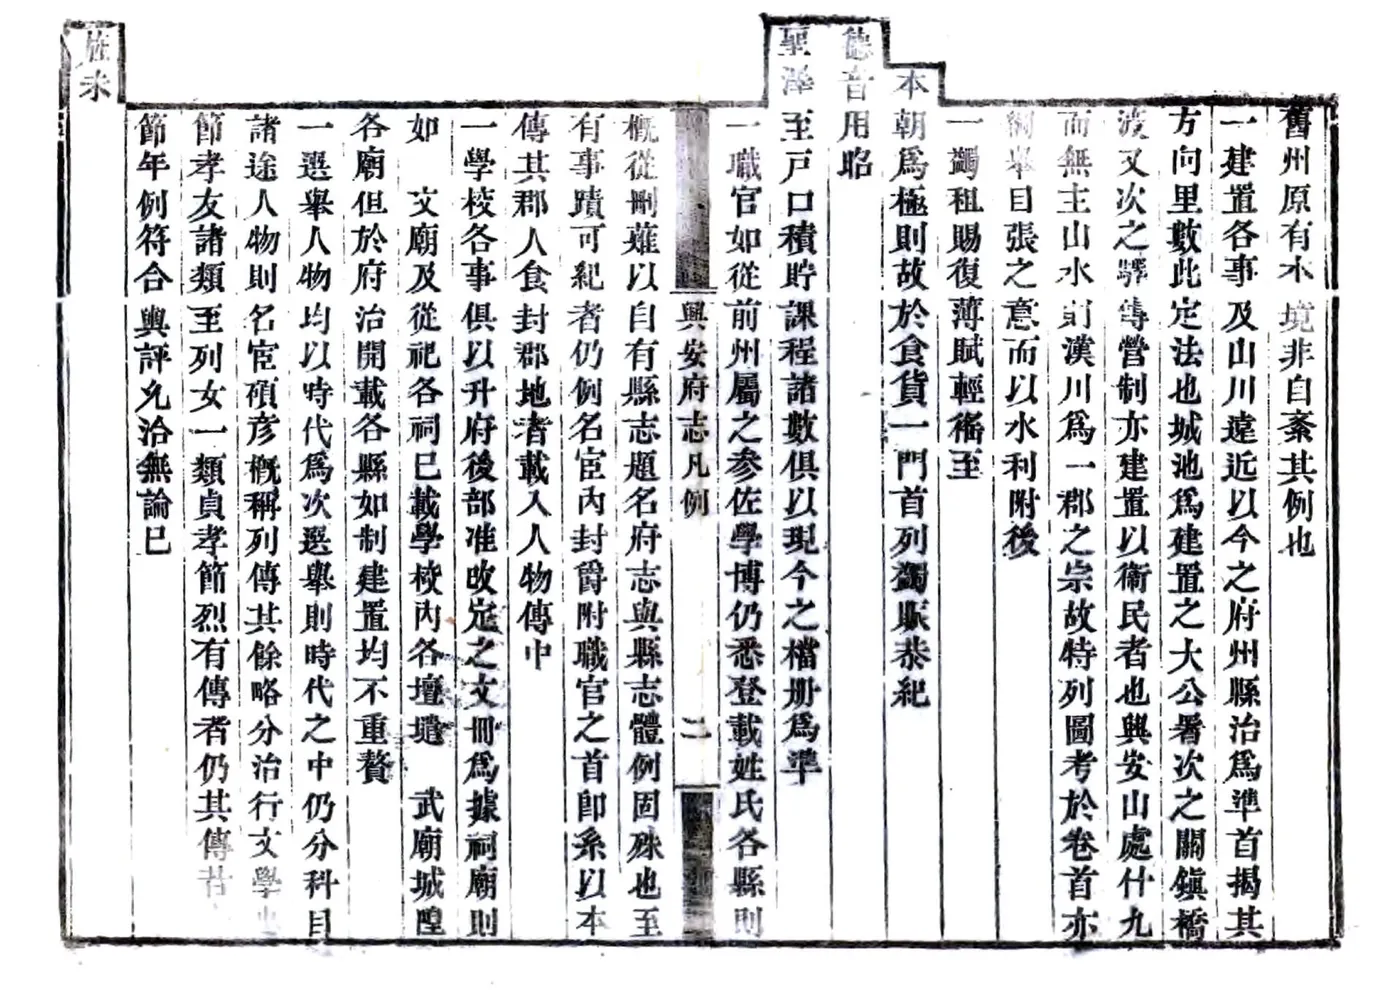 舊州原有水境非自紊其例也
一建置各事及山川遠近以今之府州縣治爲準首揭其
方向里數此定法也城池爲建置之大公署次之關鎭橋
渡又次之驛傳營制亦建置以衞民者也興安山處什九
而無主山水則漢川爲一郡之宗故特列圖考於卷首亦
綱舉目張之意而以水利附後
一蠲租賜復薄賦輕徭至
本朝爲極則故於食貨一門首列蠲賑恭紀
德音用昭
聖澤至戸口積貯課程諸數俱以現今之檔册爲準
一職官如從前州屬之參佐學博仍悉登載姓氏各縣則
興安府志凡例 二
概從刪薙以自有縣志題名府志與縣志體例固殊也至
有事蹟可紀者仍例名宦內封爵附職官之首即系以本
傳其郡人食封郡地者載入人物傳中
一學校各事俱以升府後部准改定之文冊爲據祠廟則
如 文廟及從祀各祠已載學校內各壇壝 武廟城隍
各廟但於府治開載各縣如制建置均不重贅
一選舉人物均以時代爲次選舉則時代之中仍分科目
諸途人物則名宦碩彥概稱列傳其餘略分治行文學
節孝友諸類至列女一類貞孝節烈有傳者仍其傳昔
旌未
節年例符合輿評允洽無論已